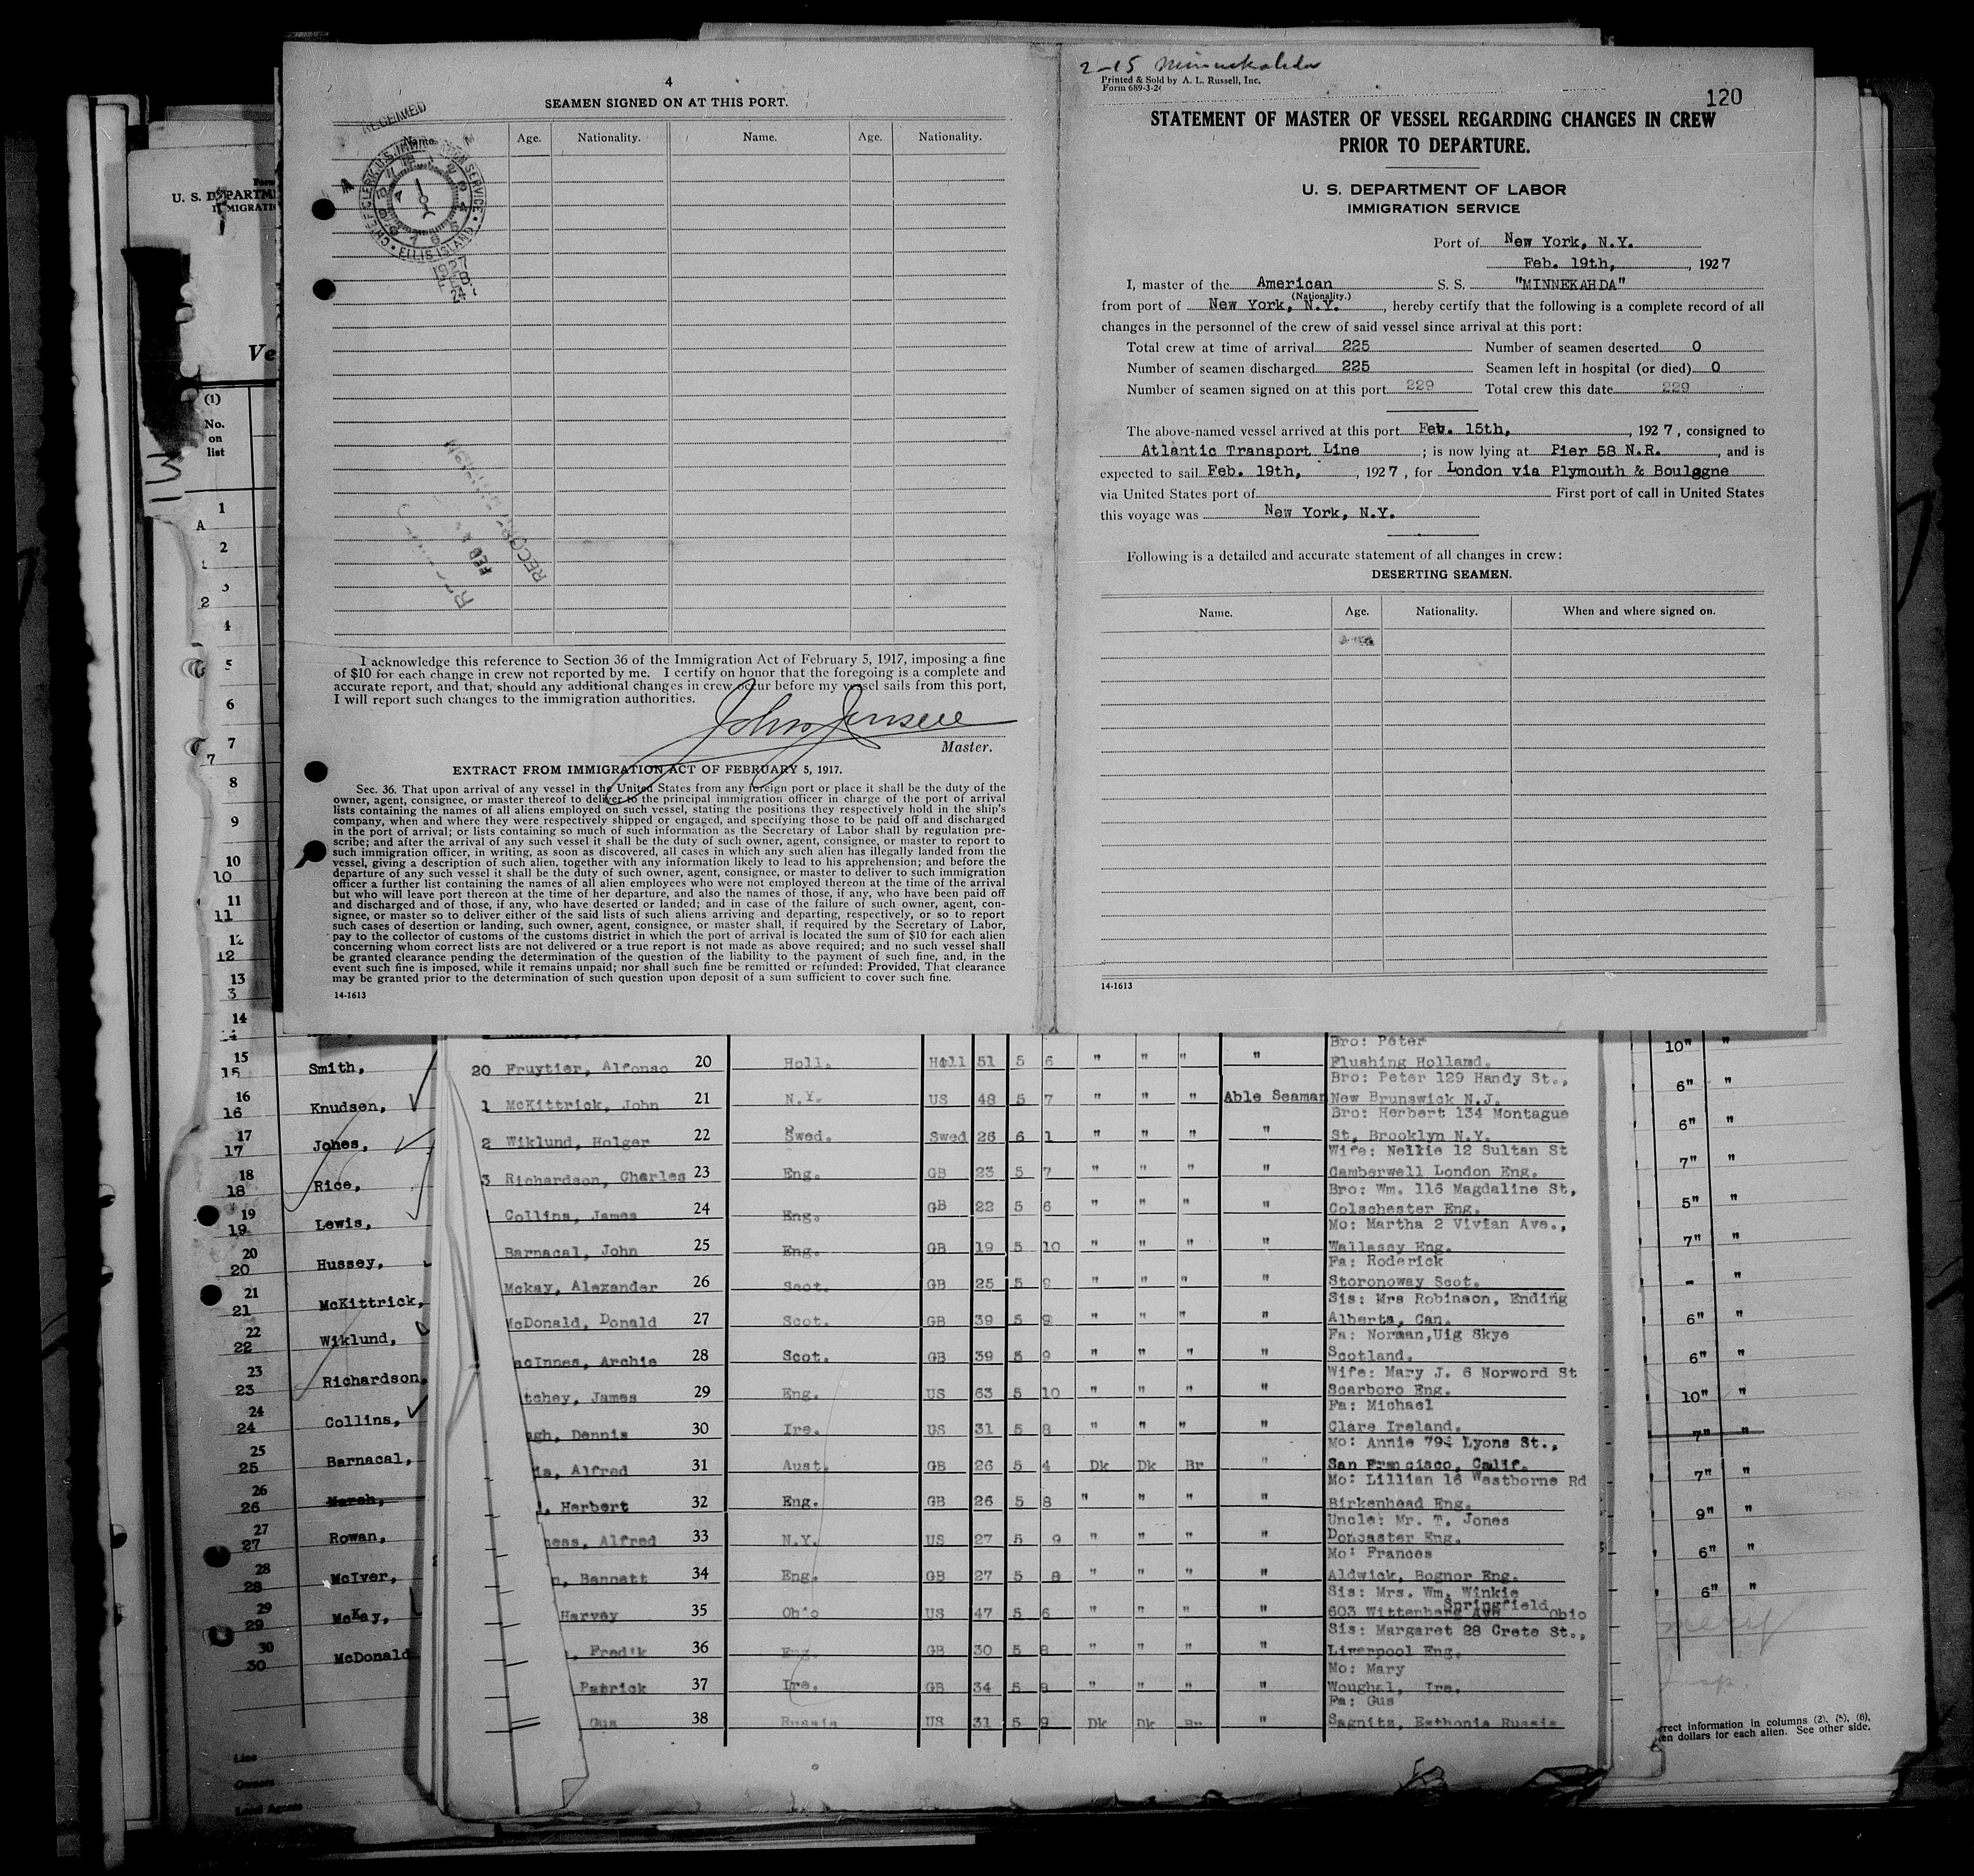 4
SEAMEN SIGNED ON AT THIS PORT.
RECEIVED
Name. Age. Nationality. Name. Age. Nationality.
CHIEF CLERK, U.S. IMMIGRATION SERVICE
ELLIS ISLAND
I acknowledge this reference to Section 36 of the Immigration Act of February 5, 1917, imposing a fine
of $10 for each change in crew not reported by me. I certify on honor that the foregoing is a complete and
accurate report, and that, should any additional changes in crew occur before my vessel sails from this port,
I will report such changes to the immigration authorities.
John Jensen
Master.
EXTRACT FROM IMMIGRATION ACT OF FEBRUARY 5, 1917.
Sec. 36. That upon arrival of any vessel in the United States from any foreign port or place it shall be the duty of the
owner, agent, consignee, or master thereof to deliver to the principal immigration officer in charge of the port of arrival
lists containing the names of all aliens employed on such vessel, stating the positions they respectively hold in the ship's
company, when and where they were respectively shipped or engaged, and specifying those to be paid off and discharged
in the port of arrival; or lists containing so much of such information as the Secretary of Labor shall by regulation pre-
scribe; and after the arrival of any such vessel it shall be the duty of such owner, agent, consignee, or master to report to
such immigration officer, in writing, as soon as discovered, all cases in which any such alien has illegally landed from the
vessel, giving a description of such alien, together with any information likely to lead to his apprehension; and before the
departure of any such vessel it shall be the duty of such owner, agent, consignee, or master to deliver to such immigration
officer a further list containing the names of all alien employees who were not employed thereon at the time of the arrival
but who will leave port thereon at the time of her departure, and also the names of those, if any, who have been paid off
and discharged and of those, if any, who have deserted or landed; and in case of the failure of such owner, agent, con-
signee, or master so to deliver either of the said lists of such aliens arriving and departing, respectively, or so to report
such cases of desertion or landing, such owner, agent, consignee, or master shall, if required by the Secretary of Labor,
pay to the collector of customs of the customs district in which the port of arrival is located the sum of $10 for each alien
concerning whom correct lists are not delivered or a true report is not made as above required; and no such vessel shall
be granted clearance pending the determination of the question of the liability to the payment of such fine, and, in the
event such fine is imposed, while it remains unpaid; nor shall such fine be remitted or refunded: Provided, That clearance
may be granted prior to the determination of such question upon deposit of a sum sufficient to cover such fine.
14-1613
2-15 Minnekahda
Printed & Sold by A. L. Russell, Inc.
Form 689-3-26
120
STATEMENT OF MASTER OF VESSEL REGARDING CHANGES IN CREW
PRIOR TO DEPARTURE.
U. S. DEPARTMENT OF LABOR
IMMIGRATION SERVICE
Port of New York, N.Y.
Feb. 19th, , 1927
I, master of the American S. S. "MINNEKAHDA"
(Nationality.)
from port of New York, N.Y. , hereby certify that the following is a complete record of all
changes in the personnel of the crew of said vessel since arrival at this port:
Total crew at time of arrival 225 Number of seamen deserted 0
Number of seamen discharged 225 Seamen left in hospital (or died) 0
Number of seamen signed on at this port 229 Total crew this date 229
The above-named vessel arrived at this port Feb. 15th, , 1927, consigned to
Atlantic Transport Line ; is now lying at Pier 58 N.R. , and is
expected to sail Feb. 19th, , 1927, for London via Plymouth & Boulogne
via United States port of First port of call in United States
this voyage was New York, N.Y.
Following is a detailed and accurate statement of all changes in crew:
DESERTING SEAMEN.
Name. Age. Nationality. When and where signed on.
14-1613
(1)
No.
on
list
1
A
2
2
4
5
6
7
7
8
9
10
10
11
11
12
12
13
3
14
15
15 Smith,
16
16 Knudsen,
17
17 Jones,
18
18 Rice,
19
19 Lewis,
20
20 Hussey,
21
21 McKittrick,
22
22 Wiklund,
23
23 Richardson,
24
24 Collins,
25
25 Barnacal,
26
26 Marsh,
27
27 Rowan,
28
28 McIver,
29
29 McKay,
30
30 McDonald
Line
Owners
Local Agents
Bro: Peter
20 Fruytier, Alfonso 20 Holl. Holl 51 5 6 " " " " Flushing Holland.
Bro: Peter 129 Handy St.,
1 McKittrick, John 21 N.Y. US 48 5 7 " " " Able Seaman New Brunswick N.J.
Bro: Herbert 134 Montague
2 Wiklund, Holger 22 Swed. Swed 26 6 1 " " " " St, Brooklyn N.Y.
Wife: Nellie 12 Sultan St
3 Richardson, Charles 23 Eng. GB 23 5 7 " " " " Camberwell London Eng.
Bro: Wm. 116 Magdaline St,
Collins, James 24 Eng. GB 22 5 6 " " " " Colschester Eng.
Mo: Martha 2 Vivian Ave.,
Barnacal, John 25 Eng. GB 19 5 10 " " " " Wallasey Eng.
Fa: Roderick
Mckay, Alexander 26 Scot. GB 25 5 9 " " " " Storonoway Scot.
Sis: Mrs Robinson, Ending
McDonald, Donald 27 Scot. GB 39 5 9 " " " " Alberta, Can.
Fa: Norman,Uig Skye
acInnes, Archie 28 Scot. GB 39 5 9 " " " " Scotland.
Wife: Mary J. 6 Norword St
tchey, James 29 Eng. US 63 5 10 " " " " Scarboro Eng.
Fa: Michael
gh, Dennis 30 Ire. US 31 5 8 " " " " Clare Ireland.
Mo: Annie 794 Lyons St.,
is, Alfred 31 Aust. GB 26 5 4 Dk Dk Br " San Francisco, Calif.
Mo: Lillian 16 Westborne Rd
, Herbert 32 Eng. GB 26 5 8 " " " " Birkenhead Eng.
Uncle: Mr. T. Jones
ness, Alfred 33 N.Y. US 27 5 9 " " " " Doncaster Eng.
Mo: Frances
n, Bennett 34 Eng. GB 27 5 8 " " " " Aldwick, Bognor Eng.
Sis: Mrs. Wm. Winkie
Springfield
Harvey 35 Ohio US 47 5 6 " " " " 603 Wittenberg Ave Ohio
Sis: Margaret 28 Crete St.,
, Fredik 36 Eng. GB 30 5 8 " " " " Liverpool Eng.
Mo: Mary
Patrick 37 Ire. GB 34 5 8 " " " " Woughal, Ire.
Fa: Gus
Gus 38 Russia US 31 5 9 Dk Dk Br " Sagnitz, Esthonia Russia
10" "
6" "
6" "
7" "
5" "
7" "
- "
6" "
6" "
10" "
7" "
7" "
9" "
6" "
6" "
rrect information in columns (2), (5), (6),
ten dollars for each alien. See other side.